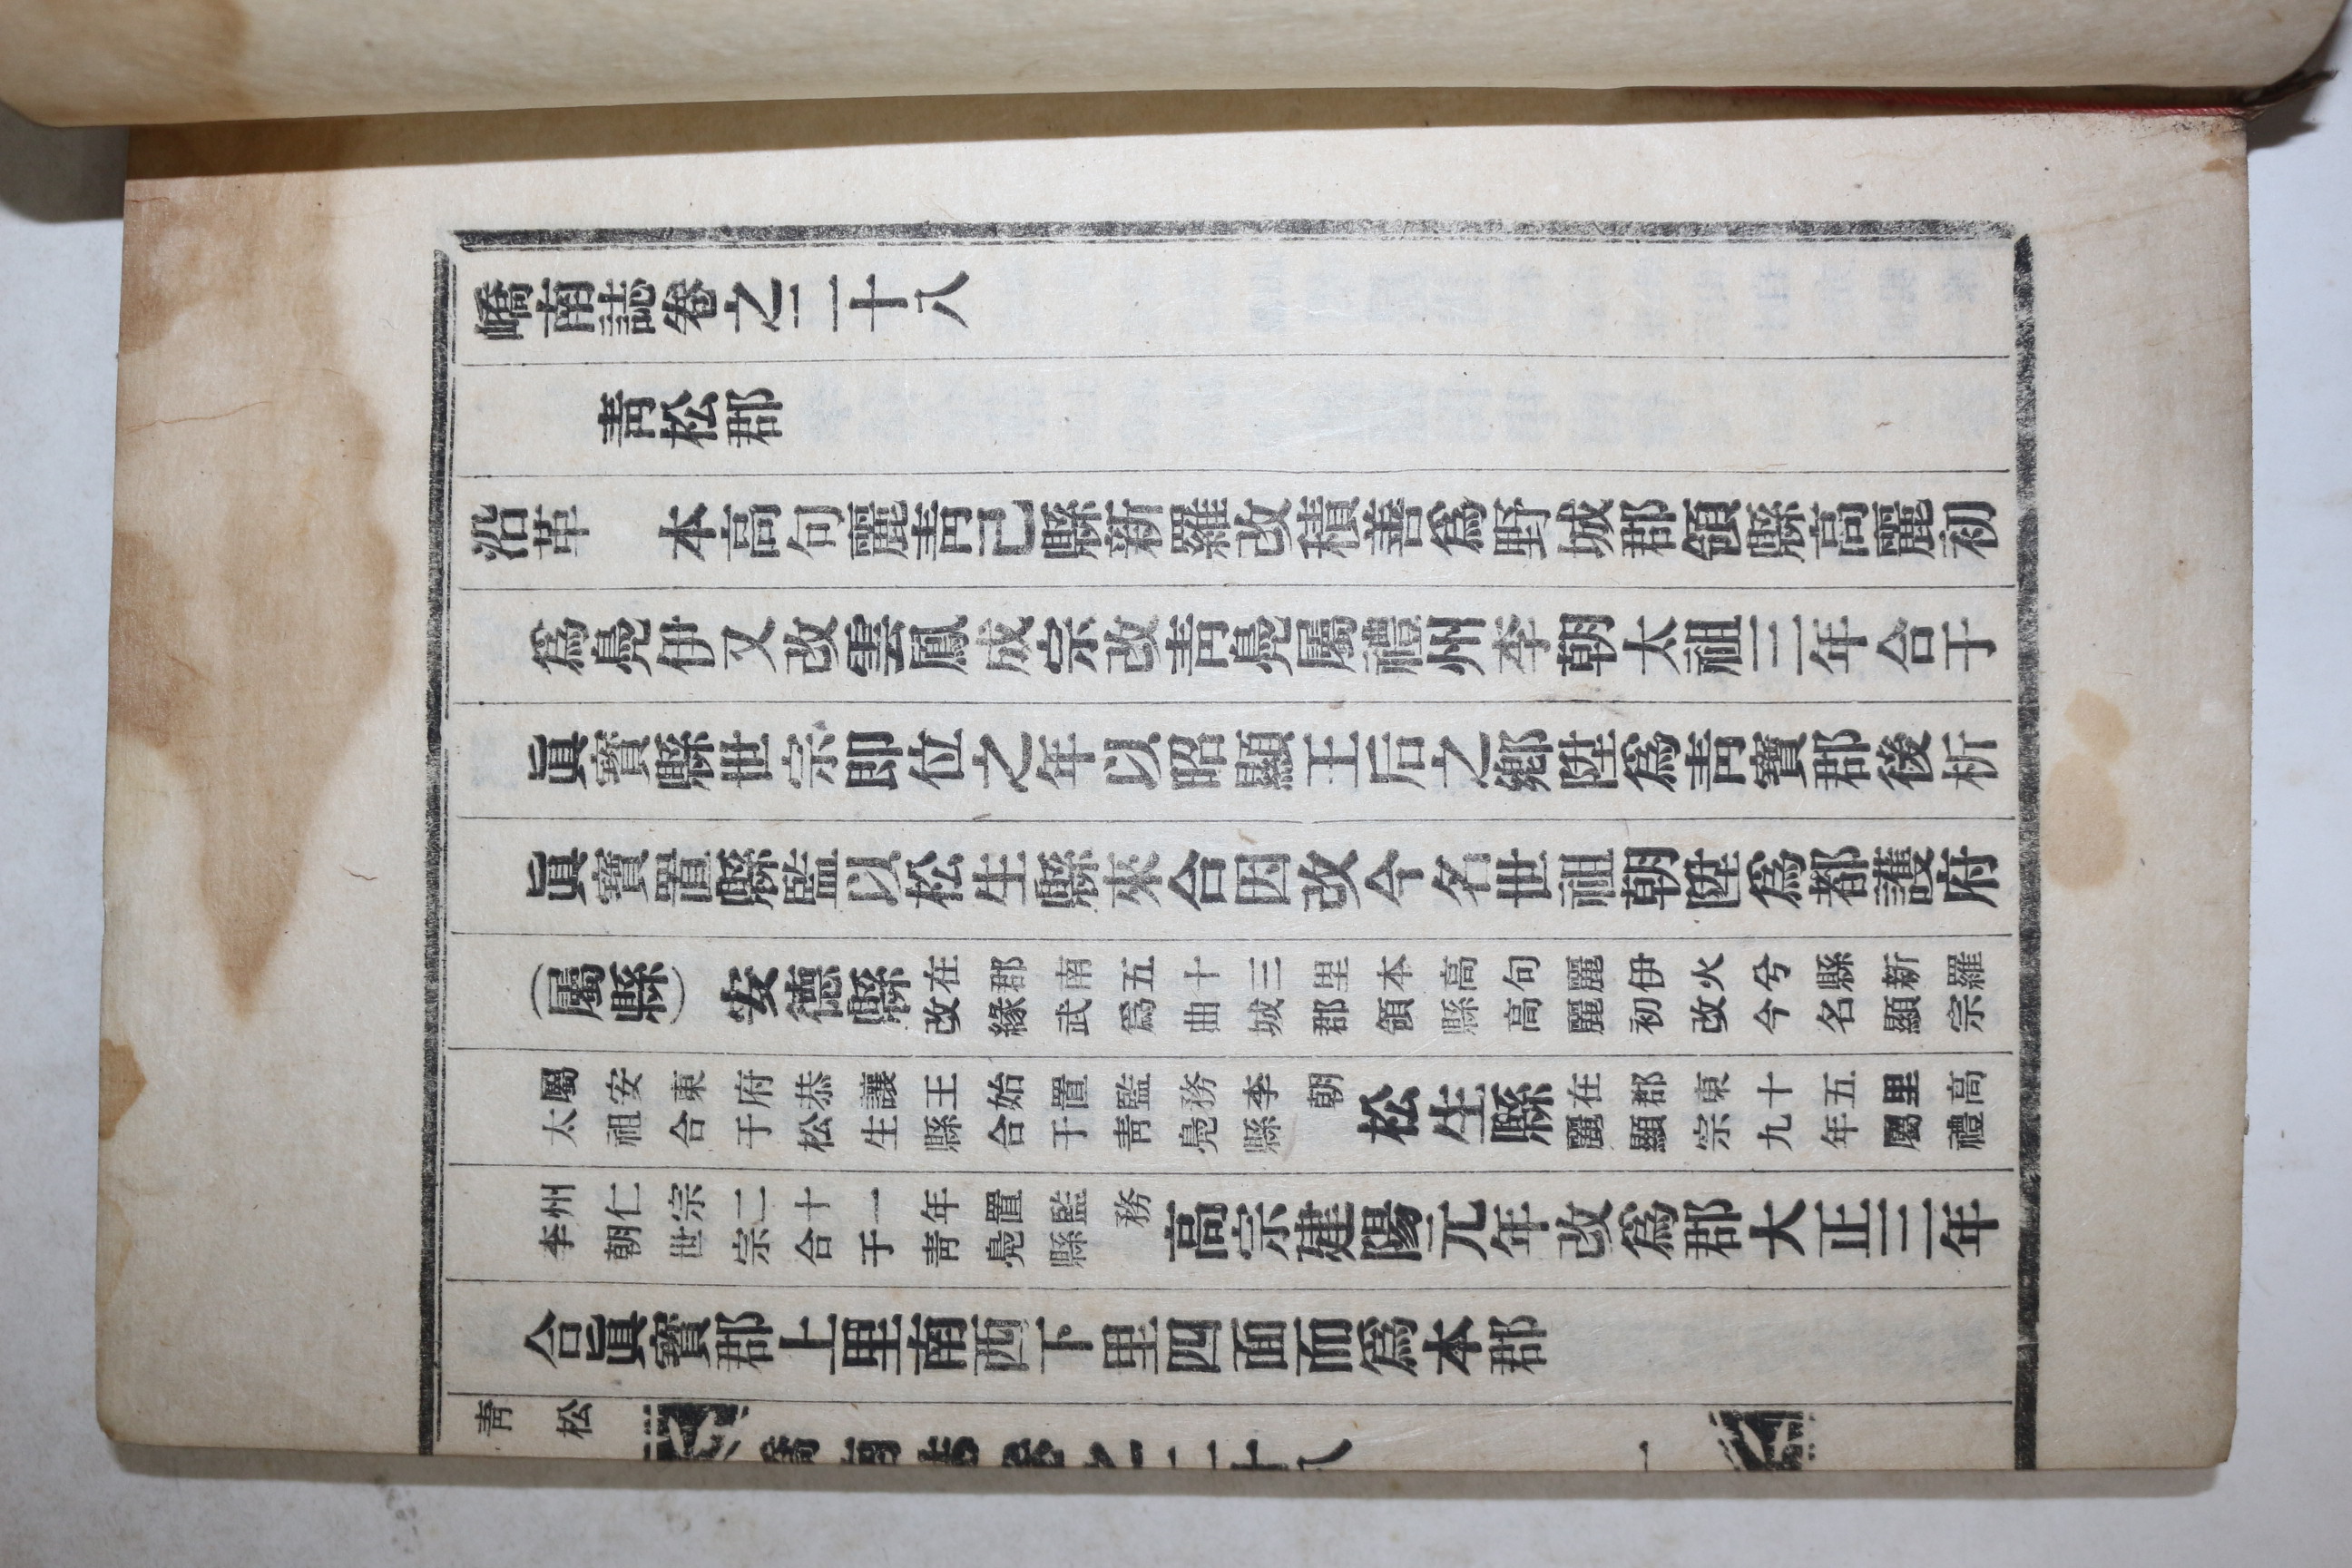 嶠南誌卷之二十八
靑松郡
沿革　本高句麗靑己縣新羅改積善爲野城郡領縣高麗初
爲鳧伊又改雲鳳成宗改靑鳧屬禮州李朝太祖三年合于
眞寶縣世宗即位之年以昭顯王后之鄕陞爲靑寶郡後析
眞寶置縣監以松生縣來合因改今名世祖朝陞爲都護府
(屬縣)安德縣在郡南五十三里本高句麗伊火兮縣新羅改緣武爲曲城郡領縣高麗初改今名顯宗
屬安東府恭讓王始置監務李朝太祖合于松生縣合于靑鳧縣松生縣在郡東十五里高麗顯宗九年屬禮
州仁宗二十一年置監務李朝世宗合于靑鳧縣高宗建陽元年改爲郡大正三年
合眞寶郡上里南西下里四面而爲本郡
靑松　嶠南誌卷之二十八　一